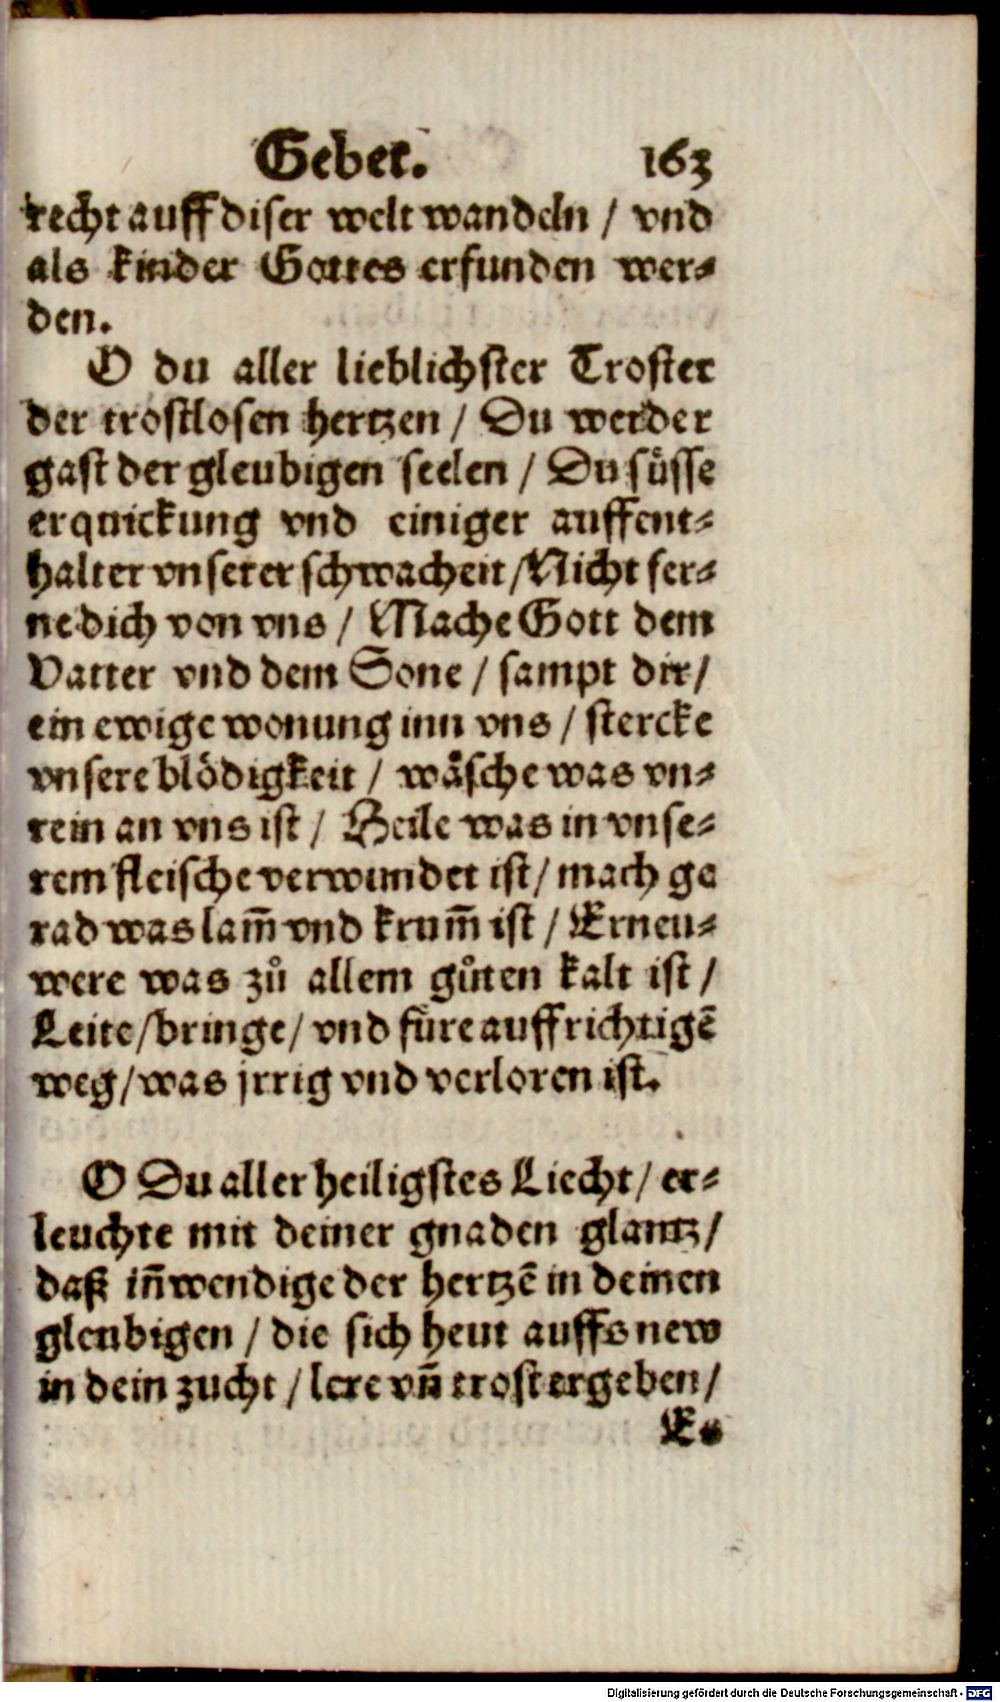 Gebet. 163
recht auff diser welt wandeln / vnd
als kinder Gottes erfunden wer⸗
den.
O du aller lieblichster Troster
der trostlosen hertzen / Du werder
gast der gleubigen seelen / Du süsse
erquickung vnd einiger auffent⸗
halter vnserer schwacheit / Nicht fer⸗
ne dich von vns / Mache Gott dem
Vatter vnd dem Sone / sampt dir /
ein ewige wonung inn vns / stercke
vnsere blödigkeit / wäsche was vn⸗
rein an vns ist / Heile was in vnse⸗
rem fleische verwundet ist / mach ge
rad was lam̄ vnd krum̄ ist / Erneu⸗
were was zů allem gůten kalt ist /
Leite / bringe / vnd füre auff richtigē
weg / was jrrig vnd verloren ist.
O Du aller heiligstes Liecht / er⸗
leuchte mit deiner gnaden glantz /
daß in̄wendige der hertzē in deinen
gleubigen / die sich heut auffs new
in dein zucht / lere vn̄ trost ergeben /
Es
Digitalisierung gefördert durch die Deutsche Forschungsgemeinschaft - DFG